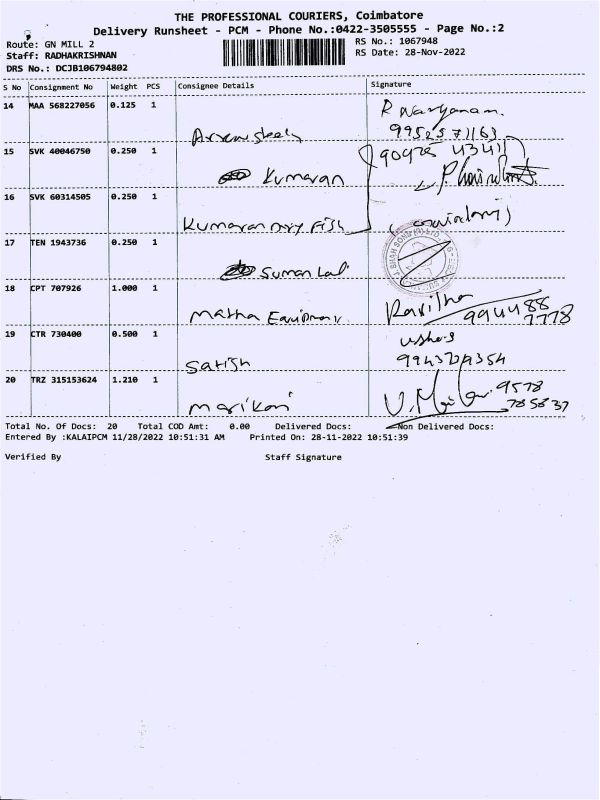 THE PROFESSIONAL COURIERS, Coimbatore
Delivery Runsheet - PCM - Phone No.:0422-3505555 - Page No.:2
Route: GN MILL 2
RS No.: 1067948
Staff: RADHAKRISHNAN
RS Date: 28-Nov-2022
DRS No.: DCJB106794802
S No Consignment No Weight PCS Consignee Details Signature
14 MAA 568227056 0.125 1
15 SVK 40046750 0.250 1 Kumaran
16 SVK 60314505 0.250 1 Kumaran dry Fish
17 TEN 1943736 0.250 1 Suman Lal
18 CPT 707926 1.000 1
99444 88
7778
19 CTR 730400 0.500 1 Satish
20 TRZ 315153624 1.210 1 marikani
9578
785837
Total No. Of Docs: 20 Total COD Amt: 0.00 Delivered Docs: Non Delivered Docs:
Entered By :KALAIPCM 11/28/2022 10:51:31 AM Printed On: 28-11-2022 10:51:39
Verified By Staff Signature